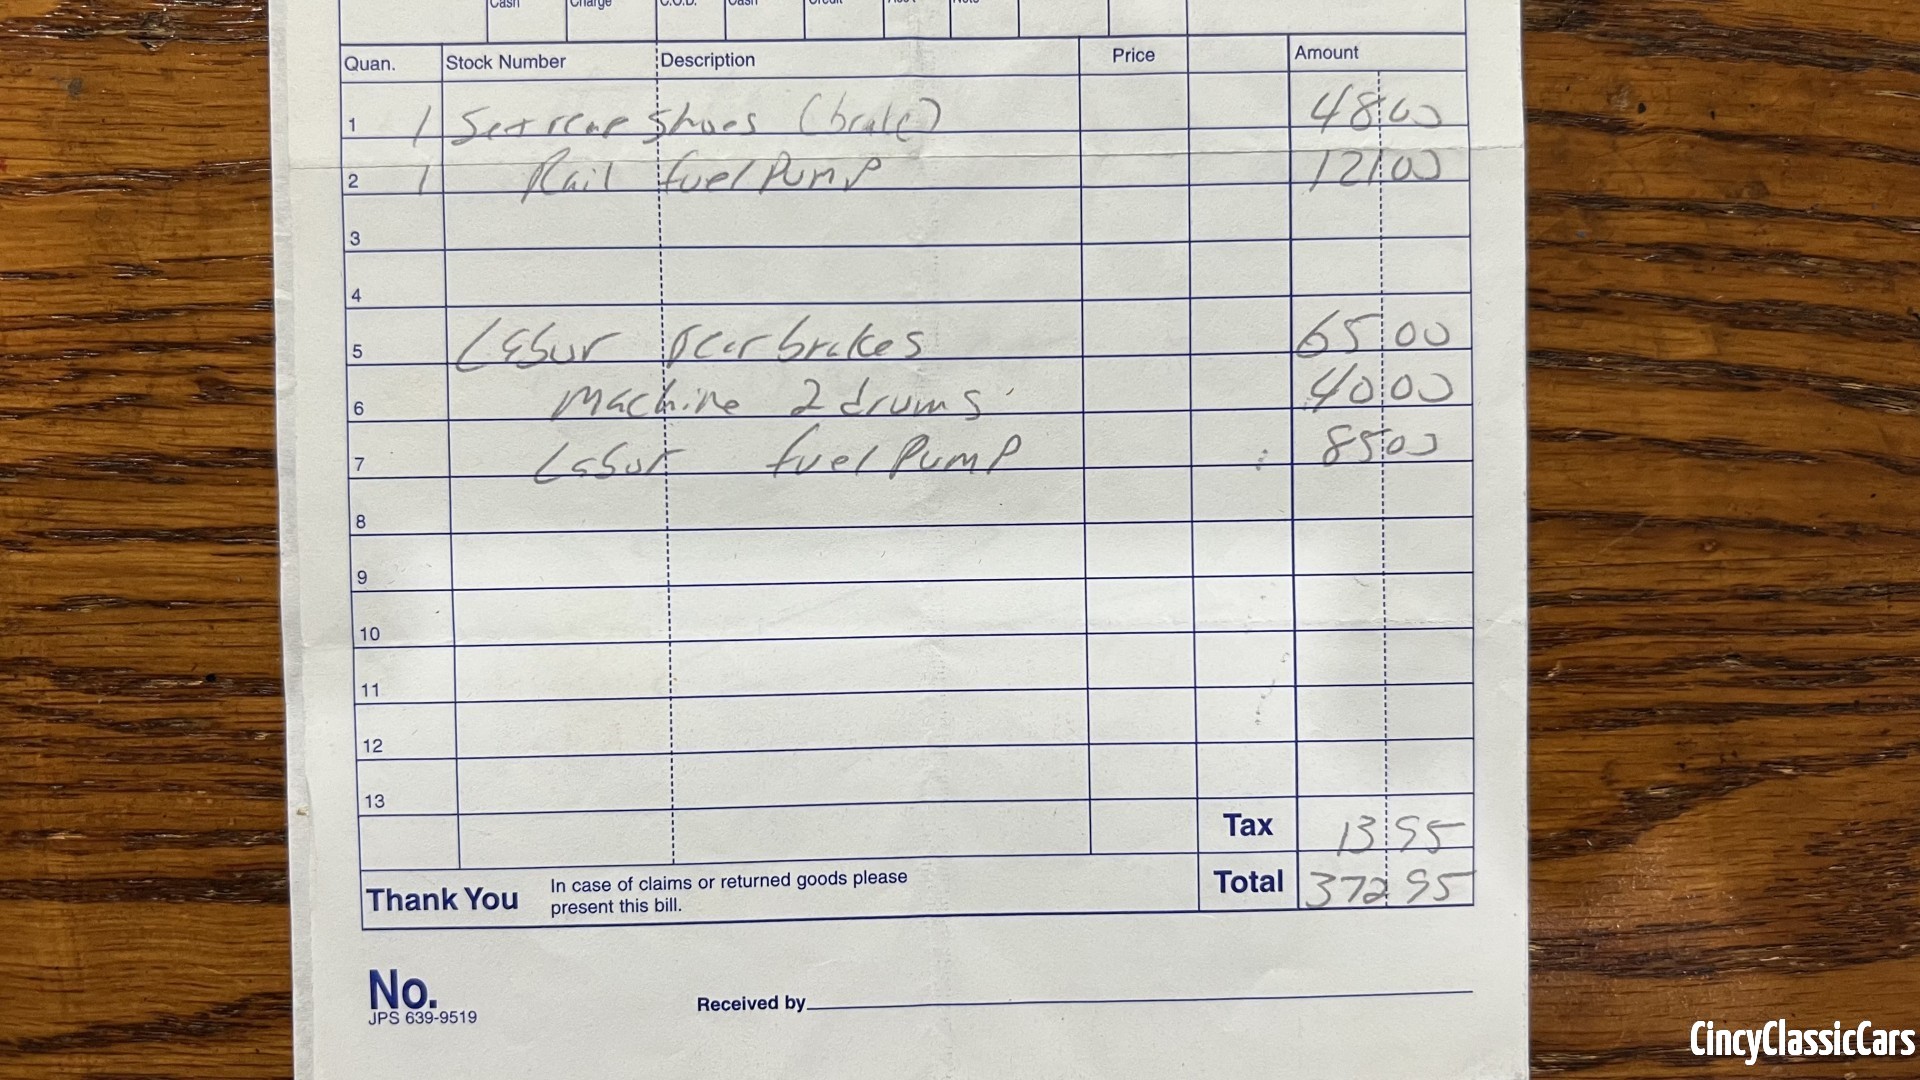 Cash Charge C.O.D. Cash Credit Acct Note
Quan. Stock Number Description Price Amount
1 1 Set rear shoes (brake) 48.00
2 1 Rail fuel Pump 121.00
3
4
5 Labor rear brakes 65 00
6 Machine 2 drums 40 00
7 Labor fuel Pump 85 00
8
9
10
11
12
13
Tax 13 95
Total 372 95
Thank You In case of claims or returned goods please
present this bill.
No.
JPS 639-9519
Received by
CincyClassicCars